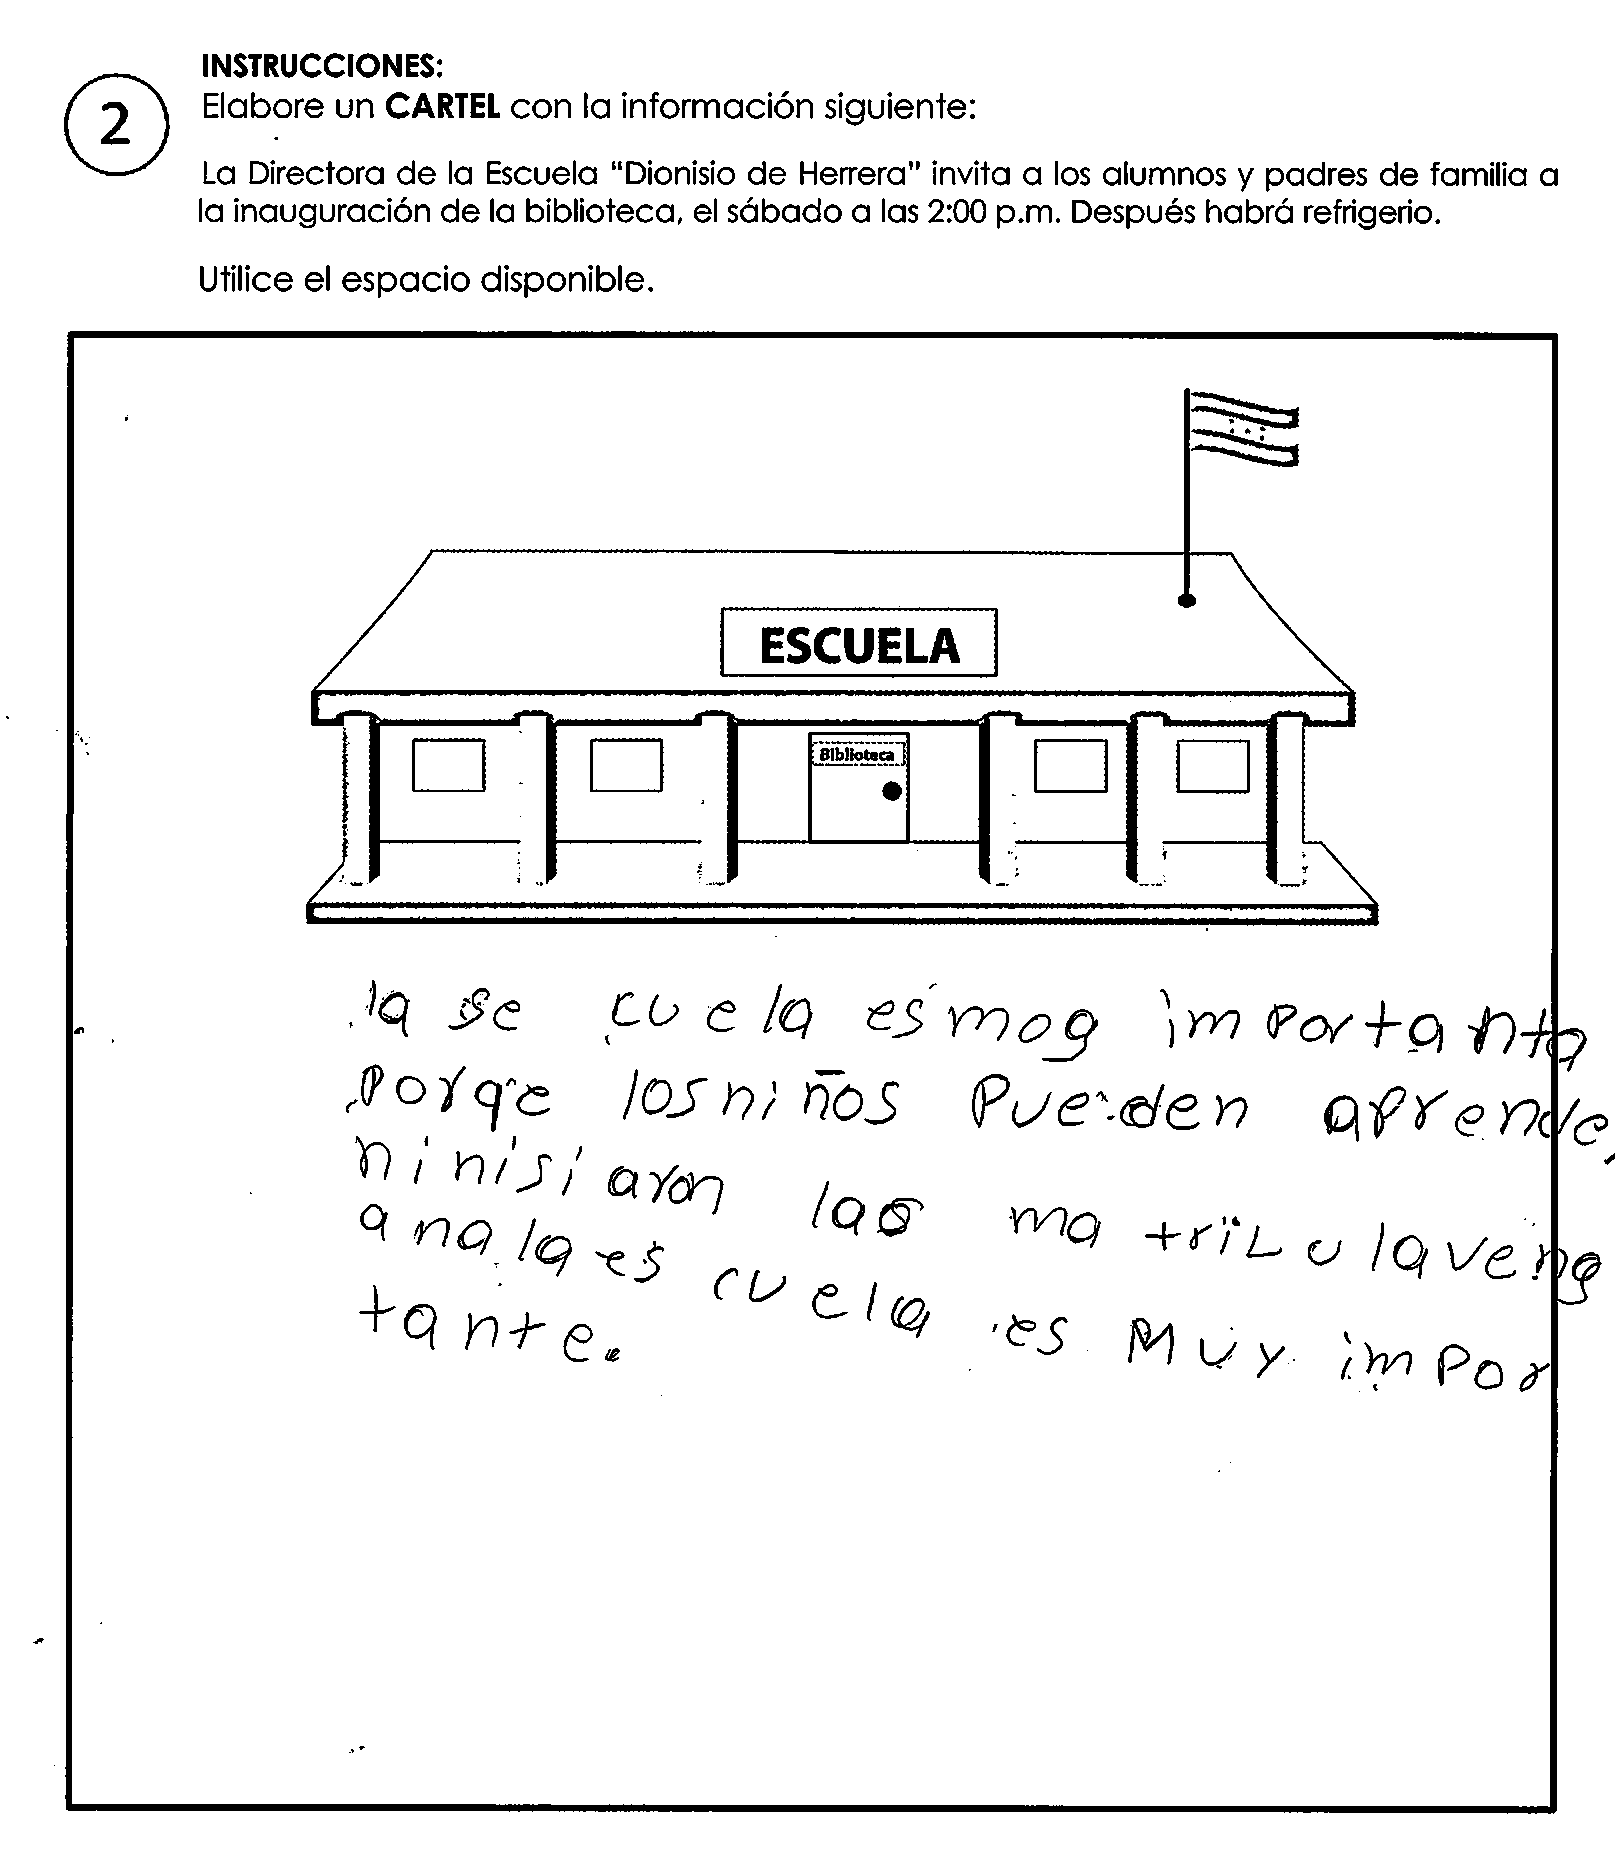 INSTRUCCIONES:
2
Elabore un CARTEL con la información siguiente:
La Directora de la Escuela "Dionisio de Herrera" invita a los alumnos y padres de familia a
la inauguración de la biblioteca, el sábado a las 2:00 p.m. Después habrá refrigerio.
Utilice el espacio disponible.
ESCUELA
Biblioteca
la se cuela es mog importanta
porqe los niños pueden aprende,
ninisiaron las matricula veng
ana la escuela es muy impor
tante.